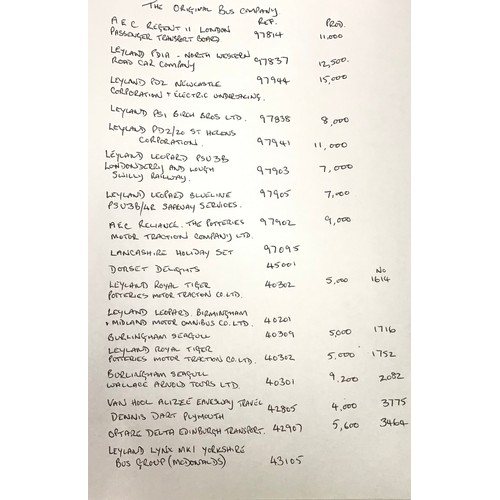 THE ORIGINAL BUS COMPANY
REF. PROD.
AEC REGENT II LONDON
PASSENGER TRANSPORT BOARD 97814 11,000
LEYLAND PD1A - NORTH WESTERN
ROAD CAR COMPANY 97837 12,500.
LEYLAND PD2 NEWCASTLE 97944 15,000
CORPORATION + ELECTRIC UNDERTAKING.
LEYLAND PS1 BIRCH BROS LTD. 97838 8,000
LEYLAND PD2/20 ST HELENS
CORPORATION. 97941 11,000
LEYLAND LEOPARD PSU3B
LONDONDERRY AND LOUGH 97903 7,000
SWILLY RAILWAY.
LEYLAND LEOPARD BLUELINE 97905 7,000
PSU3B/4R SAFEWAY SERVICES.
AEC RELIANCE. THE POTTERIES 97902 9,000
MOTOR TRACTION COMPANY LTD.
LANCASHIRE HOLIDAY SET 97095
DORSET DELIGHTS 45001
No
LEYLAND ROYAL TIGER 40302 5,000 1614
POTTERIES MOTOR TRACTON CO. LTD.
LEYLAND LEOPARD. BIRMINGHAM
+ MIDLAND MOTOR OMNIBUS CO. LTD. 40201
BURLINGHAM SEAGULL 40309 5,000 1716
LEYLAND ROYAL TIGER
POTTERIES MOTOR TRACTION CO. LTD. 40302 5,000 1752
BURLINGHAM SEAGULL
WALLACE ARNOLD TOURS LTD. 40301 9,200 2082
VAN HOOL ALIZEE EAVESWAY TRAVEL 3775
DENNIS DART PLYMOUTH 42805 4,000
OPTARE DELTA EDINBURGH TRANSPORT. 42907 5,600 3464
LEYLAND LYNX MK1 YORKSHIRE
BUS GROUP (MCDONALDS) 43105